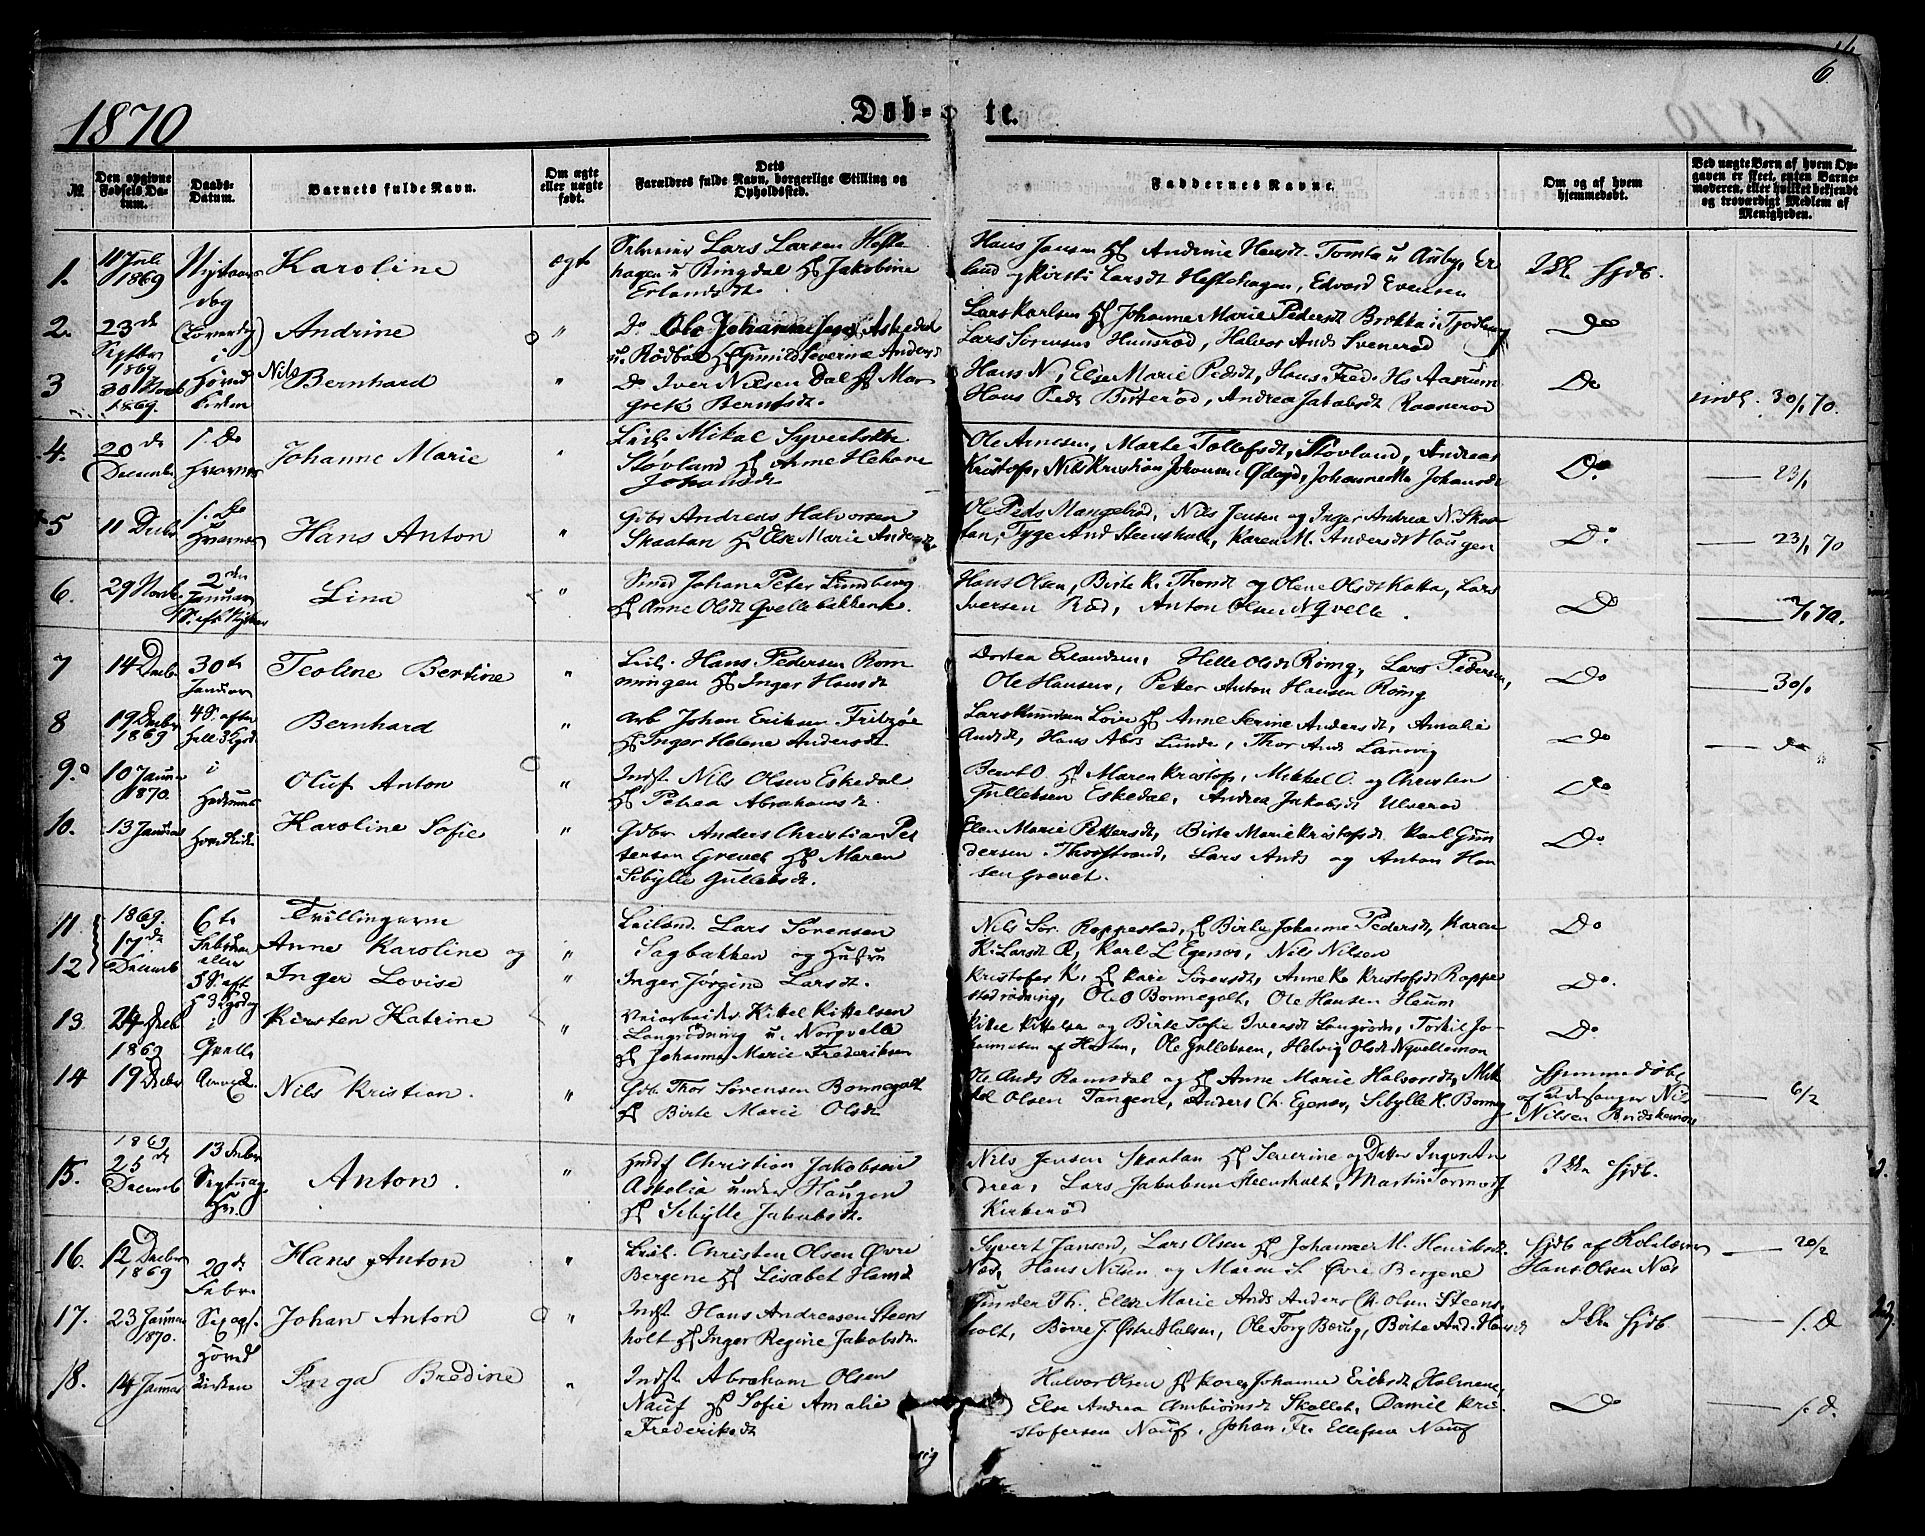 6
1870
Døb-te.
№
Den opgivne Fødsels Datum.
Daabs-Datum.
Barnets fulde Navn.
Om ægte eller uægte født.
Dets Forældres fulde Navn, borgerlige Stilling og Opholdssted.
Faddernes Navne.
Om og af hvem hjemmedøbt.
Ved uægte Børn af hvem Opgaven er skeet, enten Barnemoderen, eller hvilket bekjendt og troværdigt Medlem af Menigheden.
1.
1869
Karoline
ægte
Lars Larsen Hefte
hagen u Ringdal Hf Jakobine
Erlandsdt
Hans Jansen Hf Andrine Hansdt. Tomta u Auby, Er
land Kirsti Larsdt Heftehagen, Edvard Evensen
Ikke hjdb.
2.
23de
Septbr
1869
Andrine
"
Do
u. Rødbøl Hf Gunild Severine Anders
Lars Karlsen Hf Johanne Marie Pedersdt
Lars Sørensen Hunsrød, Halvor Ands Svenerød
Do
3
30 Novb
1869.
Hoved
kirken
Nils Bernhard
"
Do Iver Nilsen Dal Hf Mar
grete Berntsdt.
Hans N, Else Marie Pedsdt, Hans Fred. Hs Aasrum
Hans Peds Bisterød, Andrea Jakobsdt
Do
indb. 30/1 70.
4.
20de
Decemb
1. Do
Hvarnes
Johanne Marie
"
Leil. Mikal Syvertsen
Støvland Hf Anne Helene
Johansdt
Ole Arnesen, Marte Tollefsdt, Støvland, Andreas
Kristofs, Nils Kristian Johannes
Do
23/1
5
11 Decbr
1. Do
Hvarnes
Hans Anton
"
Gdbr Andreas Halvorsen
Skaatan Hf Else Marie Andersdt.
Ole Peds Mangelrød, Nils Jensen og Inger Andrea N. Skaa
tan, Tyge And Steensholt, Karen M. Andersdt Haugen
Do.
23/1 70
6.
29 Novbr
2den
Januar
Lina
"
Smed Johan Peter Lundberg
Hf Anne Olsdt Qvellebakkene.
Hans Olsen, Birte K. Thorsdt og Olene Olsdt Katta, Lars
Iversen Rød, Anton Olsen NQvelle.
Do
2/1 70.
7
14 Decbr
30te
Januar
Teoline Bertine
"
Leil. Hans Pedersen Rom
mingen Hf Inger Hansdt
Dortea Erlandsen, Helle Olsdt Römg, Lars Pedersen,
Ole Hansen, Petter Anton Hansen Römg
Do
30/1
8
19 Decbr
1869
4 S. after
Hell 3 Kgsd.
Bernhard
"
Arb Johan Eriksen Fribzøe
Hf Inger Helene Andersdt
Lars Knudsen Løve Hf Anne Serine Andersdt, Amalie
Andsdt, Hans Abs Lunde, Thor Ands Larvig
Do
do
9.
10 Januar
1870.
i
Hedrums
Oluf Anton
"
Indst. Nils Olsen Eskedal
Hf Petrea Abrahamsdt.
Bernt O Hf Maren Kristofs, Mikkel O. og Christen
Gulleksen Eskedal, Andrea Jakobsdt Ulserød
Do
10.
13 Januar
Hovedkirke
Karoline Sofie
"
Gdbr Anders Christian Pet
terson Grevet Hf Maren
Sibylle Gulleksdt.
Elen Marie Pettersdt, Birte Marie Kristofsdt Karl Gun
dersen Thorstrand, Lars Ands og Anton Han
sen Grevet.
Do
11.
12
1869.
17de
Decemb
6te
Februar
eller
5 S. aft
H 3 Kgsdag
Tvillingerne
Anne Karoline og
Inger Lovise
"
"
Leiland. Lars Sørensen
Sagbakken og Hustru
Inger Jørgine Larsdt.
Nils Sør. Roppestad, Hf Birte Johanne Pedersdt, Karen
K. Larsdt R, Karl L Egenæs, Nils Nilsen
Kristofer K. Hf Kari Sørensdt, Anne Ka Kristofsdt Roppe
stadrödning, Ole O Bonnegolt, Ole Hansen Haum
Do
Do.
13.
24 Decb
1869
i
Qvelle
Kirsten Katrine
"
Veiarbeider Kittel Kittelsen
Langrödning u. Norqvelle
Hf Johanne Marie Frederiksen
Kittel Kittelsen og Birte Sofie Iversdt Langrödn, Torkil Jo-
hannesen af Hesten, Ole Gulleksen, Helvig Olsdt Nqvellemon
Do
14
19 Decbr
Nils Kristian.
"
Gdb. Thor Sørensen Bonnegolt
Hf Birte Marie Olsdt
Ole Ands Ramsdal og Hf Anne Marie Halvorsdt, Mik
kel Olsen Tangene, Anders Ch. Egenæs, Sibylle K. Bonneg
Hjemmedøbt
af Kirkesanger Nils
Nilsen Bridskemoen
6/2
15.
1869
25de
Decemb
13 Febr
Septuag.
Hv.
Anton.
"
Husf Christian Jakobsen
Askelia under Haugen
Hf Sibylle Jakobsdt.
Nils Jensen Skaatan Hf Severine og Datter Inger An
drea, Lars Jakobsen Steensholt, Martin Tormods
Kirkerød
Ikke hjdb.
16.
12 Decbr
1869
20de
Febr.
Hans Anton
"
Leil. Christen Olsen Øvre
Bergene Hf Lisabet Hansdt
Syvert Jansen, Lars Olsen Hf Johanne M. Henriksdt
Næs, Hans Nilsen og Maren S. Øvre Bergene
Hjdb af
Hans Olsen Næs
20/2
17.
23 Januar
1870.
Johan Anton
"
Indst. Hans Andreasen Steens
holt Hf Inger Regine Jakobsdt.
Gunder Th. Else Marie Ands Anders Ch. Olsen Steens-
holt, Børre J. Østre Halsen, Ole Torg Berug, Birte And. Hansdt
Ikke hjdb
s. D
18.
14 Januar
Hoved
kirken
Inga Bredine
"
Indst Abraham Olsen
Nauf Hf Sofie Amalie
Frederiksdt
Halvor Olsen Hf Karen Johanne Eriksdt Holmene,
Else Andrea Ambiörnsdt Skollet, Daniel Kri
stofersen Nauf, Johan Fr. Ellefsen Nauf
Do
s. D.